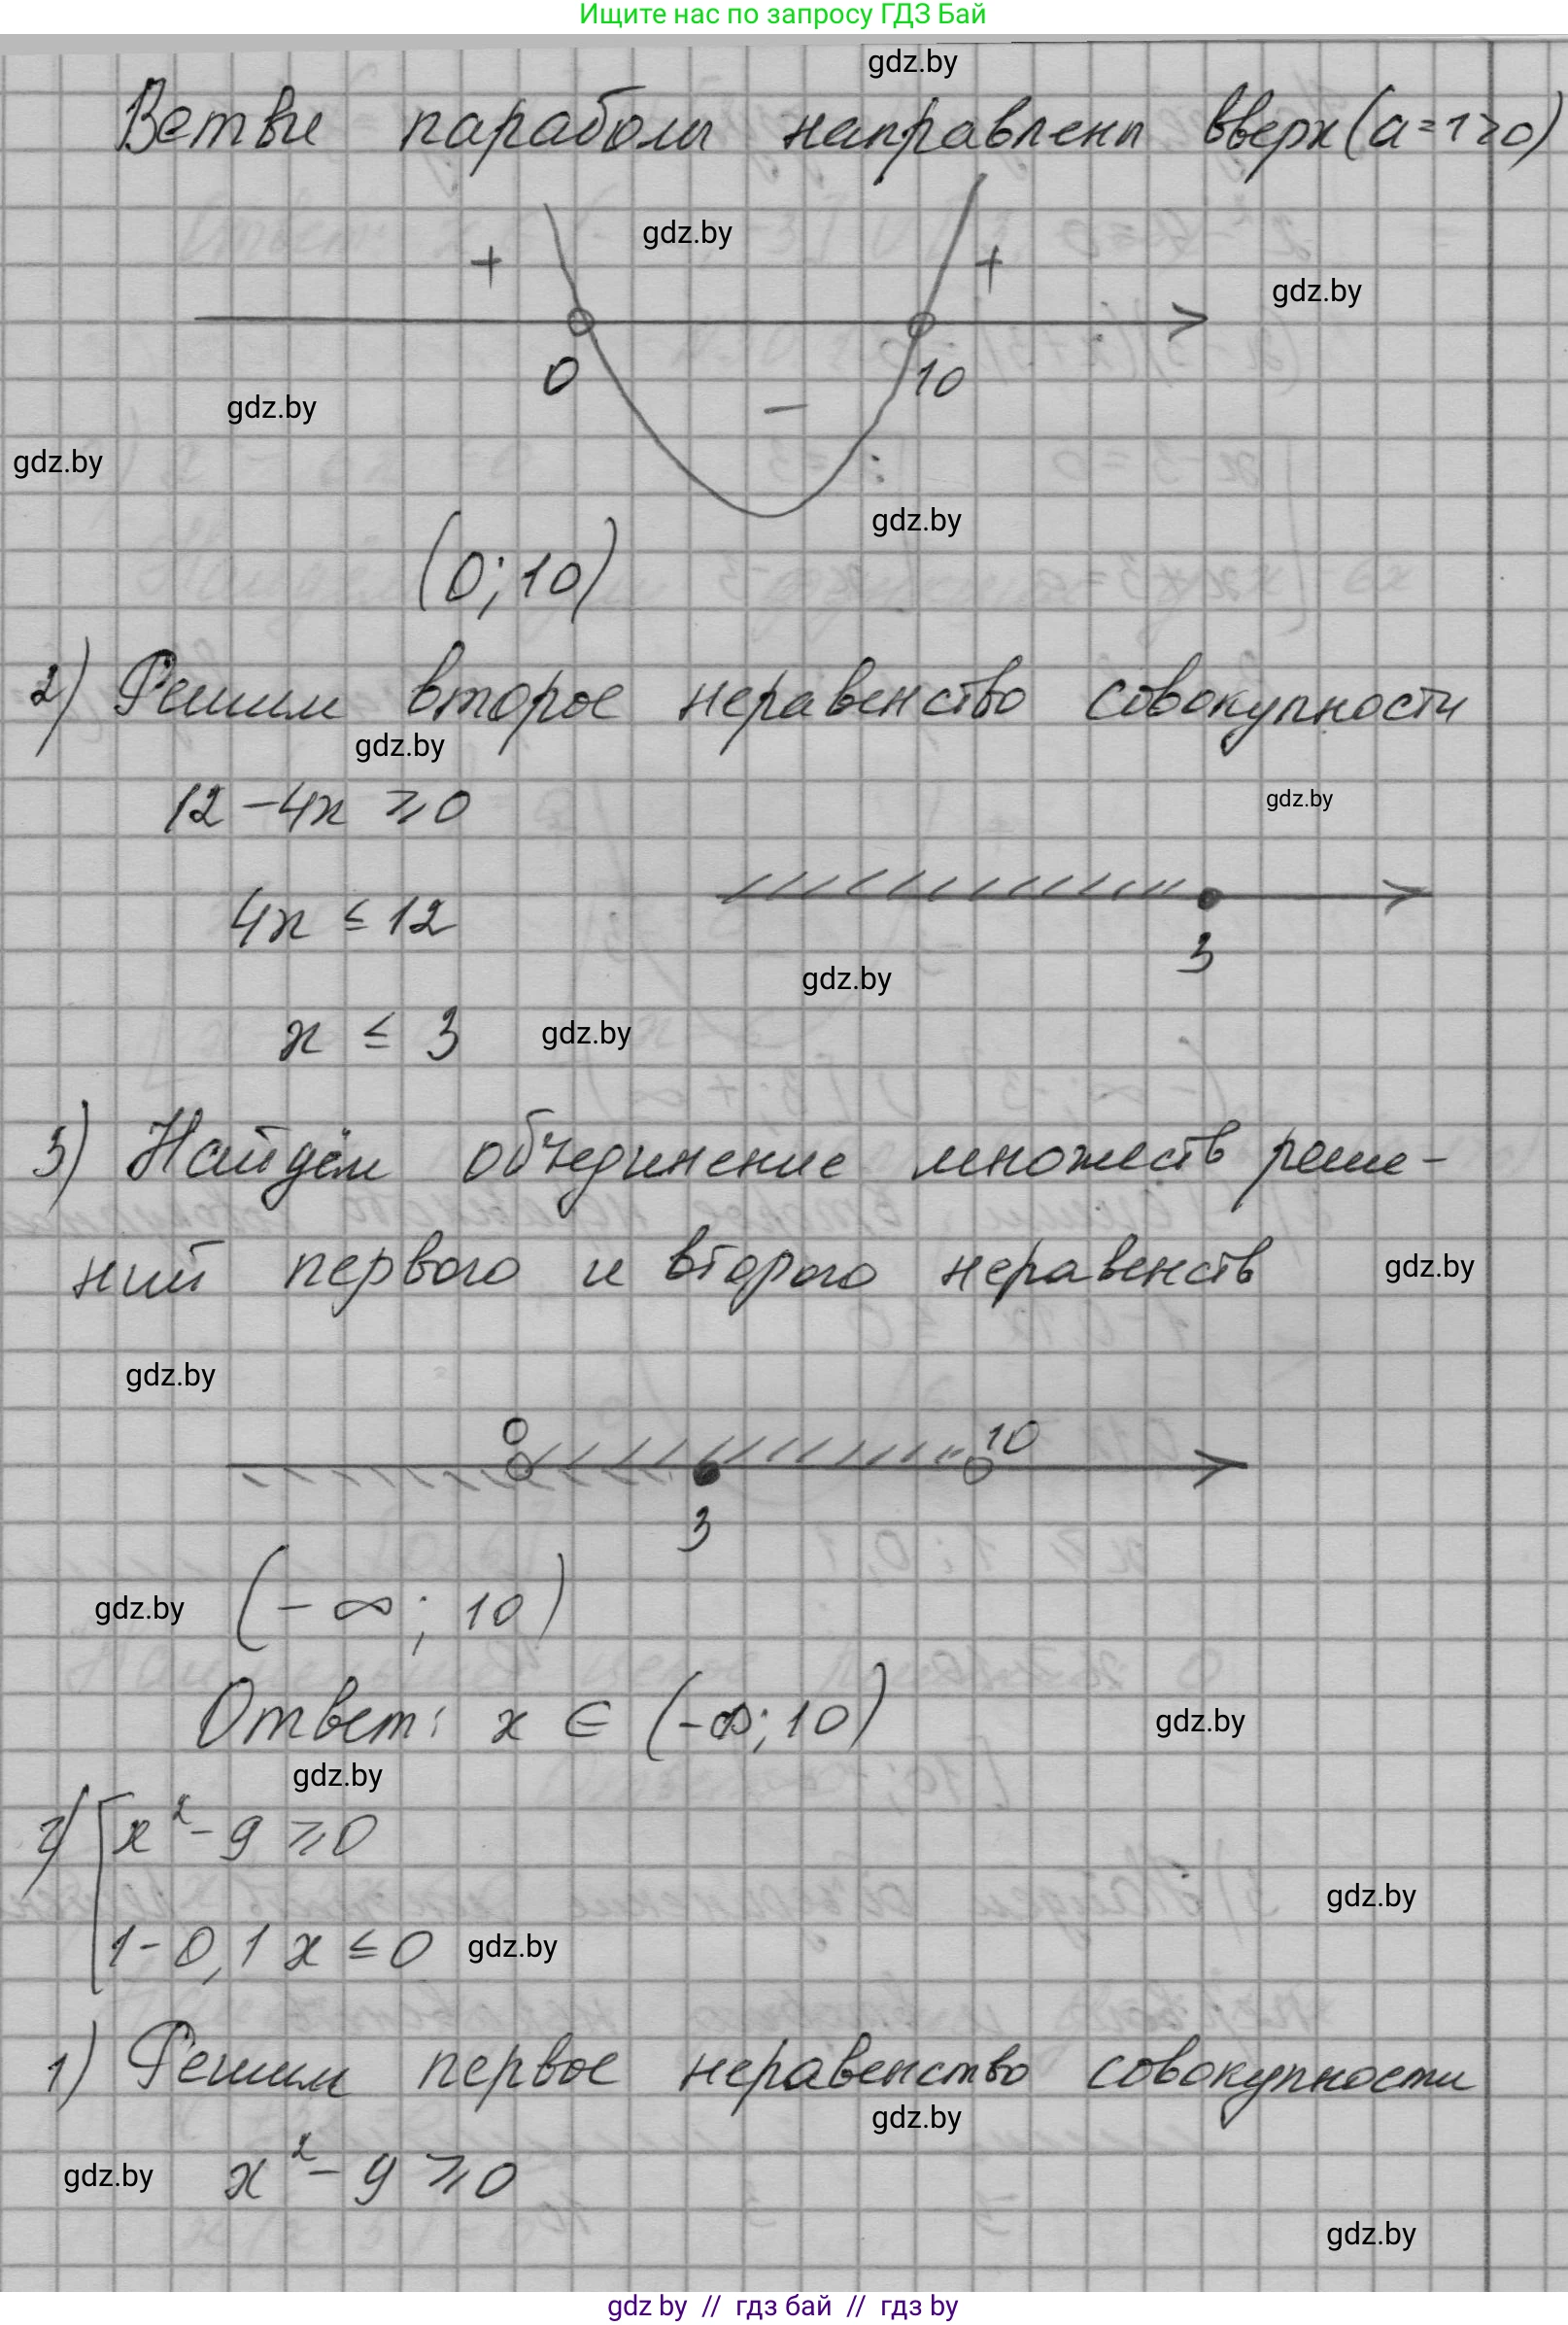 Ищите нас по запросу ГДЗ Бай
gdz.by
Ветви параболы направлены вверх (a=1>0)
gdz.by
+ +
gdz.by
0 10
gdz.by
−
gdz.by
gdz.by
(0; 10)
2) Решим второе неравенство совокупности
gdz.by
12 − 4x ⩾ 0
gdz.by
4x ≤ 12
3
gdz.by
x ≤ 3
gdz.by
3) Найдём объединение множеств реше-
ний первого и второго неравенств
gdz.by
gdz.by
0 10
3
gdz.by
(−∞; 10)
Ответ: x ∈ (−∞; 10)
gdz.by
gdz.by
г) [x² − 9 ⩾ 0
gdz.by
1 − 0,1x ≤ 0
gdz.by
1) Решим первое неравенство совокупности
gdz.by
gdz.by
x² − 9 ⩾ 0
gdz.by
gdz by // гдз бай // гдз by